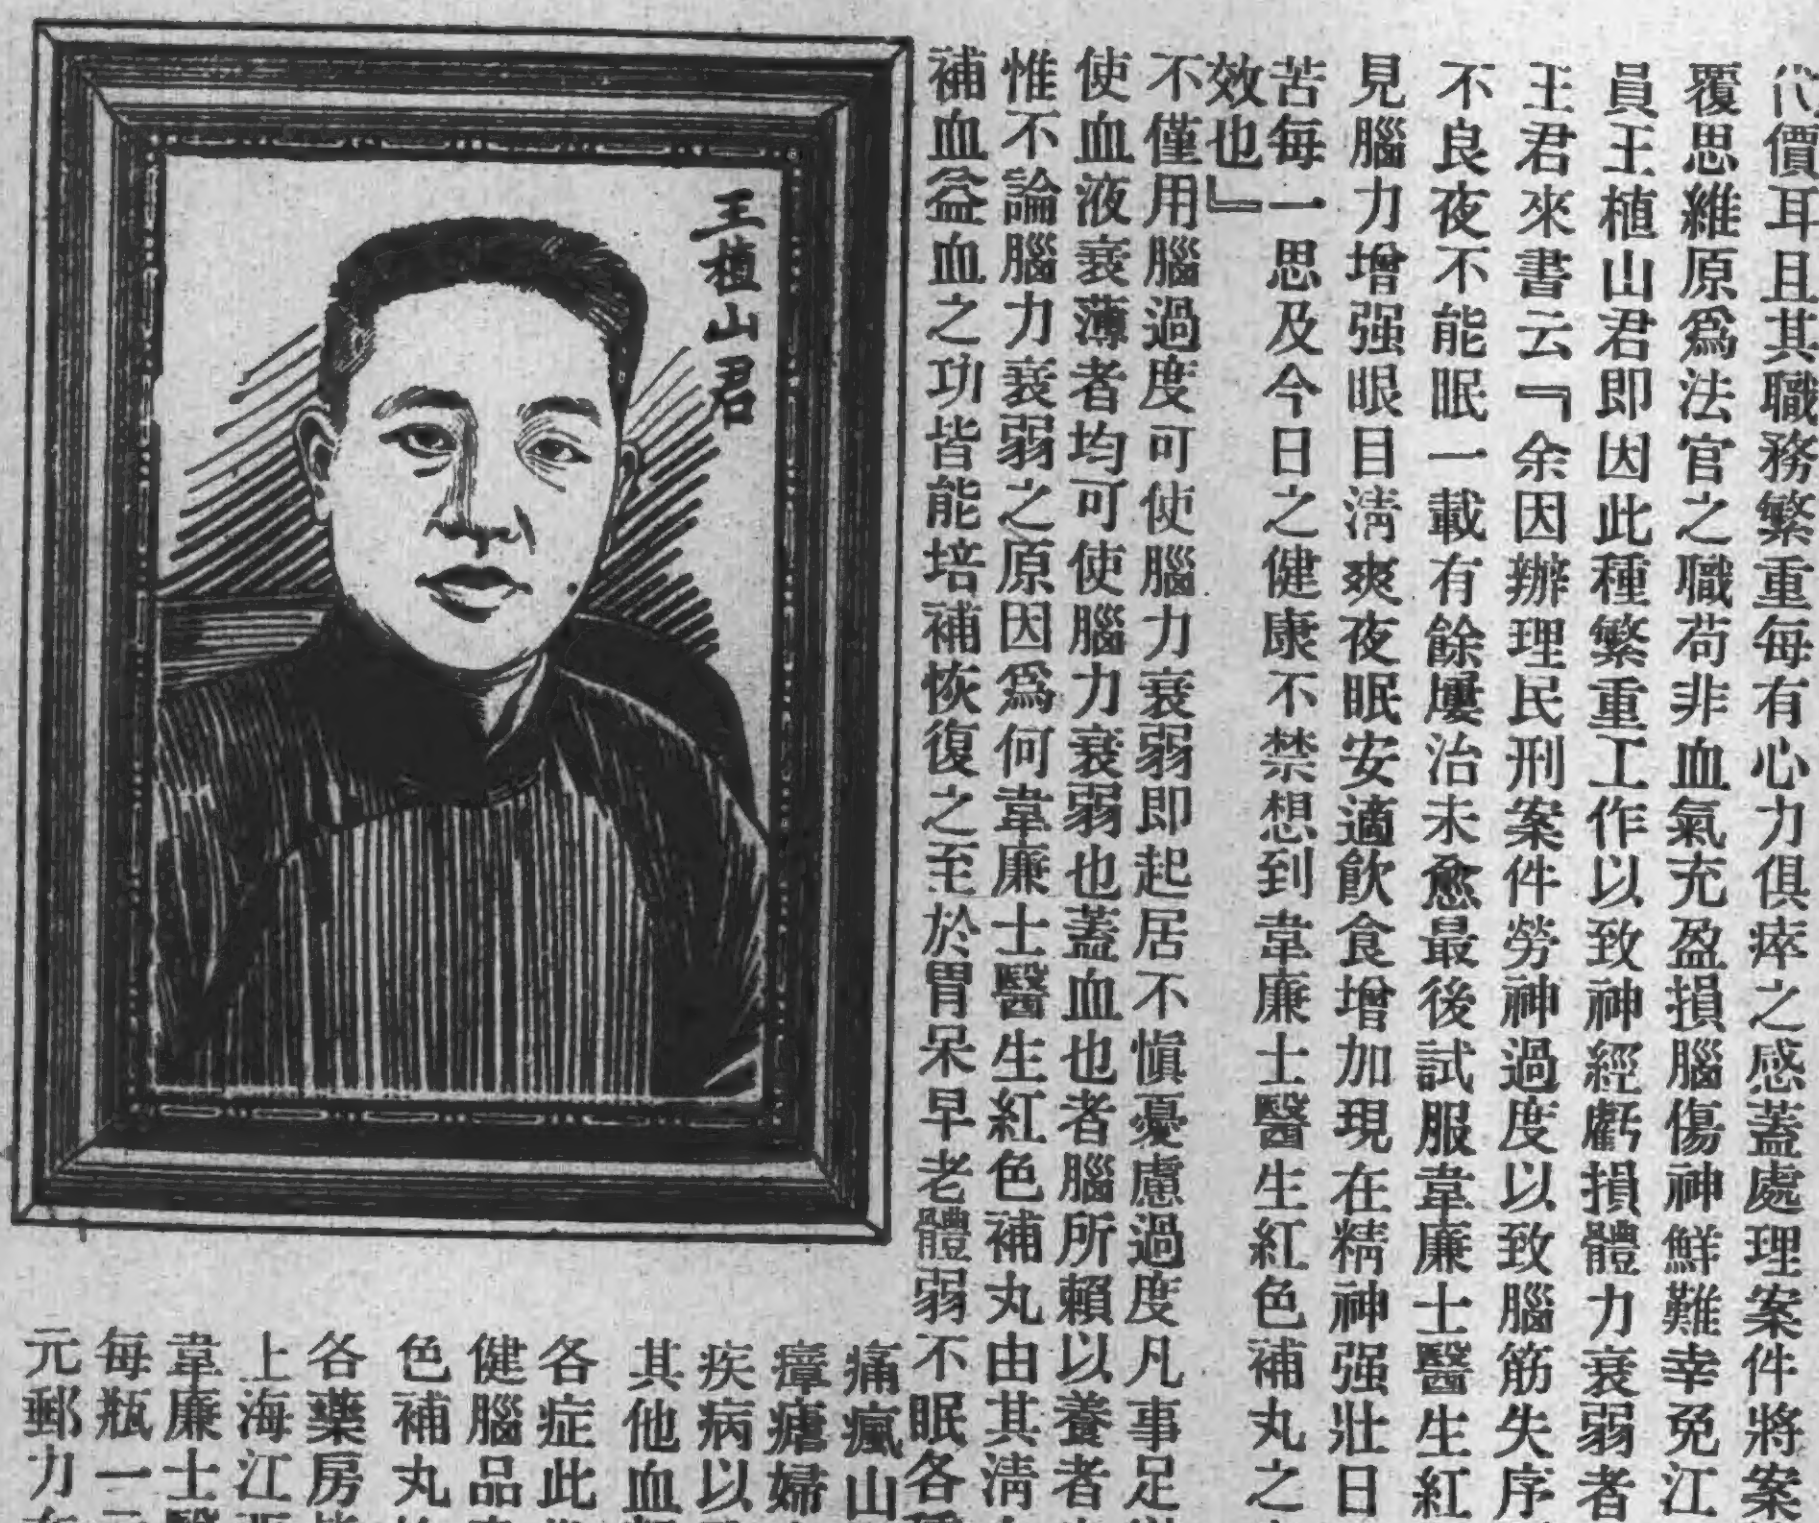 價耳且其職務繁重每有心力俱瘁之感蓋處理案件將案
覆思維原爲法官之職苟非血氣充盈損腦傷神鮮難幸免江
員王植山君即因此種繁重工作以致神經虧損體力衰弱者
王君來書云『余因辦理民刑案件勞神過度以致腦筋失序
不良夜不能眠一載有餘屢治未愈最後試服韋廉士醫生紅
見腦力增强眼目淸爽夜眠安適飲食增加現在精神强壯日
苦每一思及今日之健康不禁想到韋廉士醫生紅色補丸之
效也』
不僅用腦過度可使腦力衰弱即起居不愼憂慮過度凡事足
使血液衰薄者均可使腦力衰弱也蓋血也者腦所賴以養者
惟不論腦力衰弱之原因爲何韋廉士醫生紅色補丸由其淸
補血益血之功皆能培補恢復之至於胃呆早老體弱不眠各
王植山君
痛瘋山
瘴瘧婦
疾病以
其他血
各症此
健腦品
色補丸
各藥房
上海江
韋廉士醫
每瓶一元
元郵力